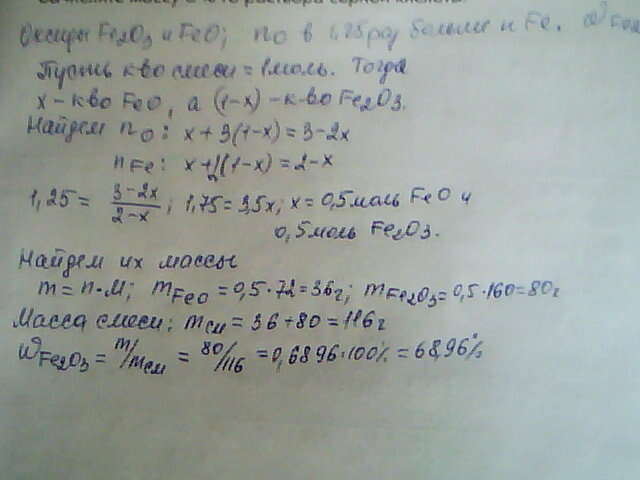 массу раствора серной кислоты.
Оксиды Fe₂O₃ и FeO; nO в 1,25 раз больше n Fe. ω Fe₂O₃
Пусть к-во смеси = 1 моль. Тогда
x – к-во FeO, а (1-x) – к-во Fe₂O₃.
Найдем nO: x + 3(1-x) = 3-2x
nFe: x+2(1-x) = 2-x
1,25 = 3-2x / 2-x ; 1,75 = 3,5x; x = 0,5 моль FeO и
0,5 моль Fe₂O₃.
Найдем их массы
m = n·M; mFeO = 0,5·72 = 36г; mFe₂O₃ = 0,5·160 = 80г
Масса смеси: mсм = 36+80 = 116г
ωFe₂O₃ = m/mсм = 80/116 = 0,6896·100% = 68,96%